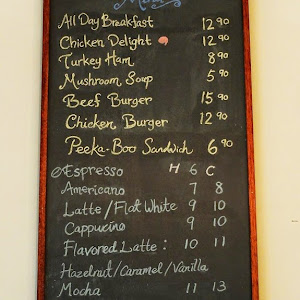 Menu
All Day Breakfast 12 90
Chicken Delight 12 90
Turkey Ham 8 90
Mushroom Soup 5 90
Beef Burger 15 90
Chicken Burger 12 90
Peeka-Boo Sandwich 6 90
Espresso H 6 C
Americano 7 8
Latte/Flat White 9 10
Cappucino 9 10
Flavored Latte: 10 11
Hazelnut/Caramel/Vanilla
Mocha 11 13